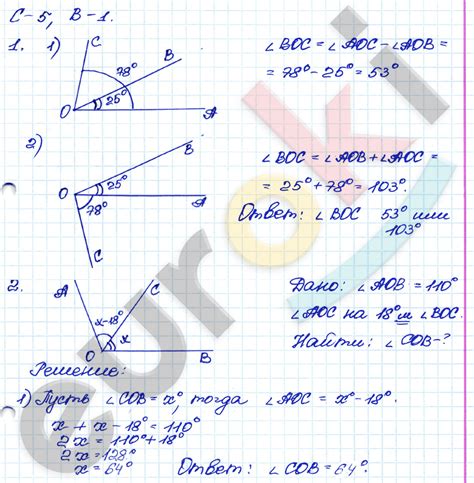 С-5, В-1.
1. 1)
C
B
78°
25°
O
A
∠BOC = ∠AOC - ∠AOB =
= 78° - 25° = 53°
2)
B
25°
O
A
78°
C
∠BOC = ∠AOB + ∠AOC =
= 25° + 78° = 103°.
Ответ: ∠BOC 53° или
103°
2.
A
C
x-18°
x
O
B
Дано: ∠AOB = 110°
∠AOC на 18° м ∠BOC.
Найти: ∠COB - ?
Решение:
1) Пусть ∠COB = x°, тогда ∠AOC = x° - 18°.
x + x - 18° = 110°
2x = 110° + 18°
2x = 128°
x = 64°
Ответ: ∠COB = 64°.
euroki